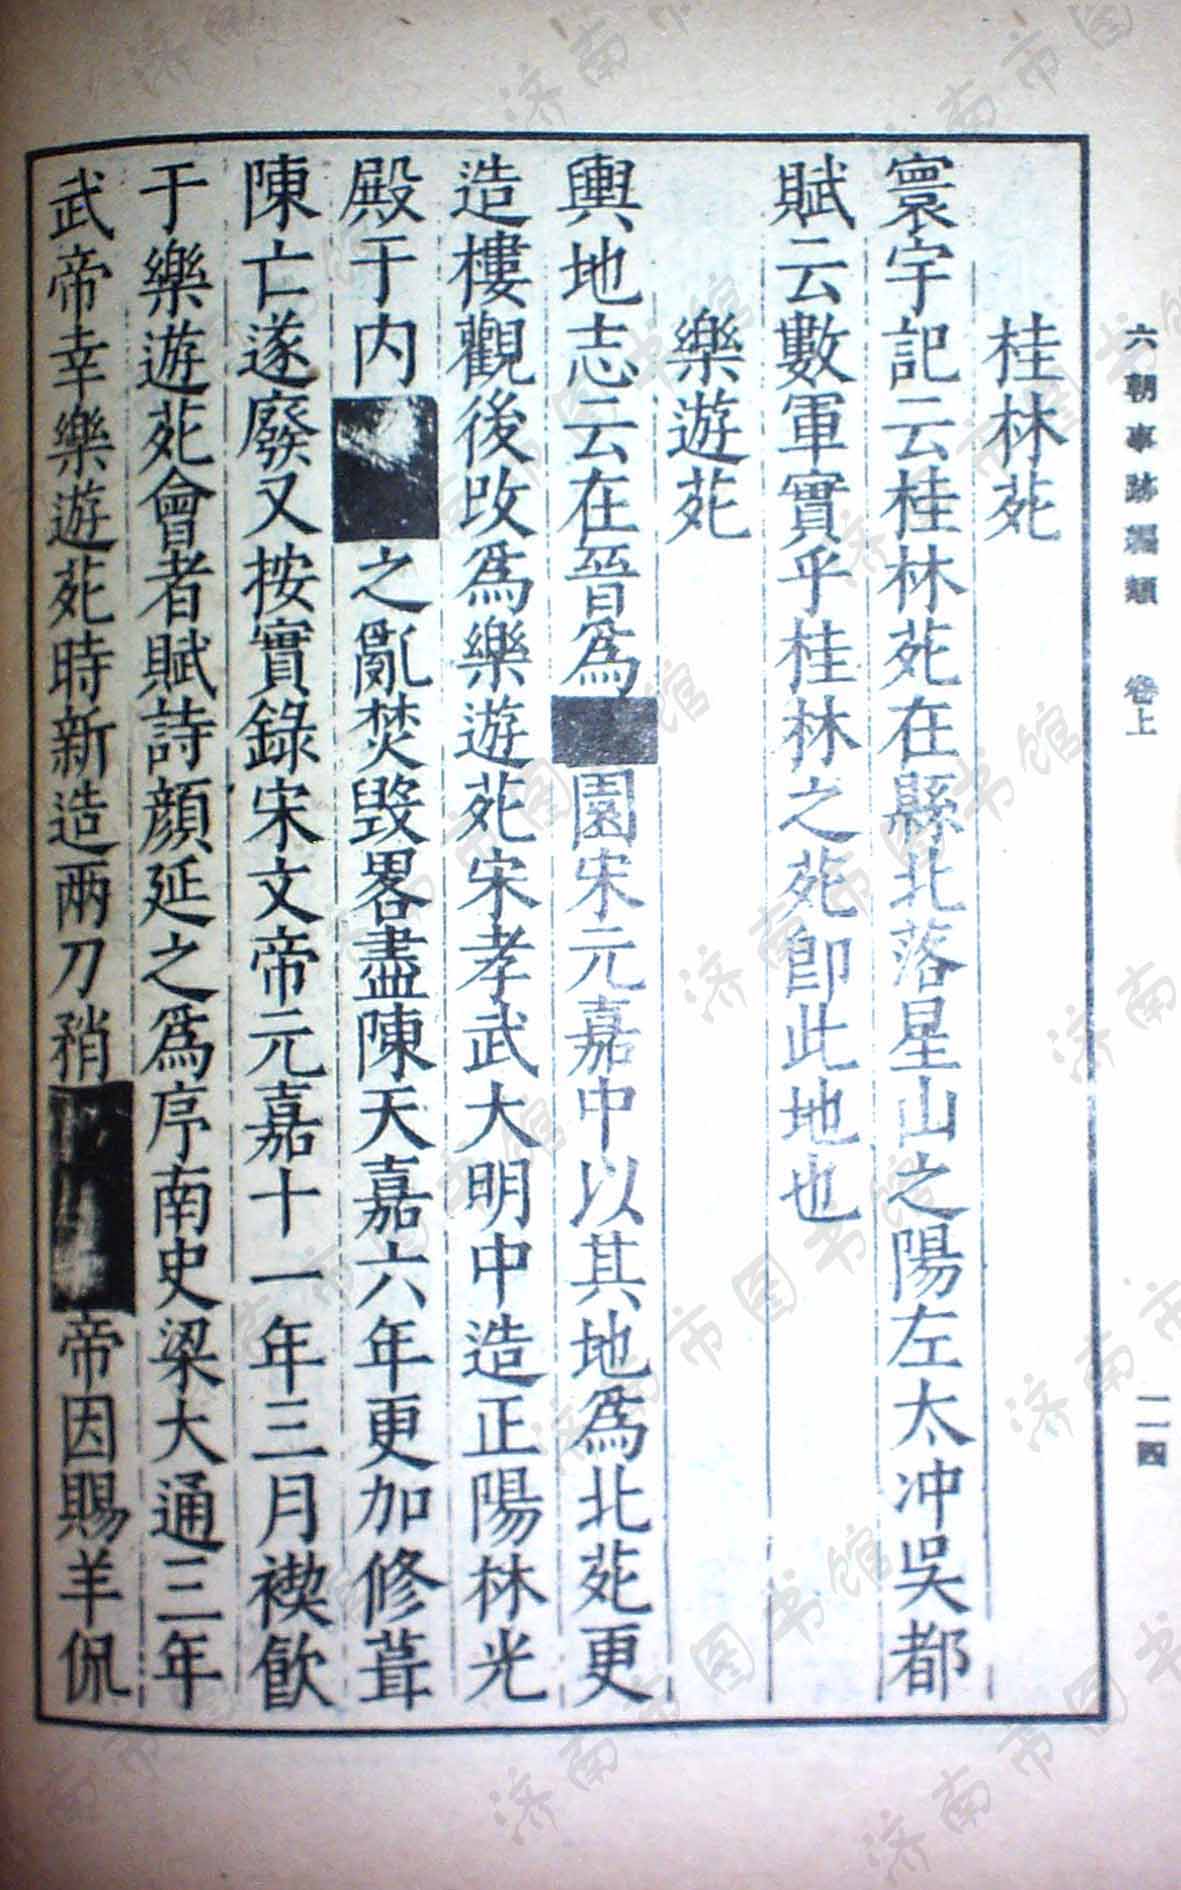 六朝事跡編類 卷上 一一四
桂林苑
寰宇記云桂林苑在縣北落星山之陽左太冲吳都
賦云數軍實乎桂林之苑卽此地也
樂遊苑
輿地志云在晉爲園宋元嘉中以其地爲北苑更
造樓觀後改爲樂遊苑宋孝武大明中造正陽林光
殿于内之亂焚毀畧盡陳天嘉六年更加修葺
陳亡遂廢又按實錄宋文帝元嘉十一年三月禊飲
于樂遊苑會者賦詩顏延之爲序南史梁大通三年
武帝幸樂遊苑時新造两刀矟帝因賜羊侃
济南市图书馆